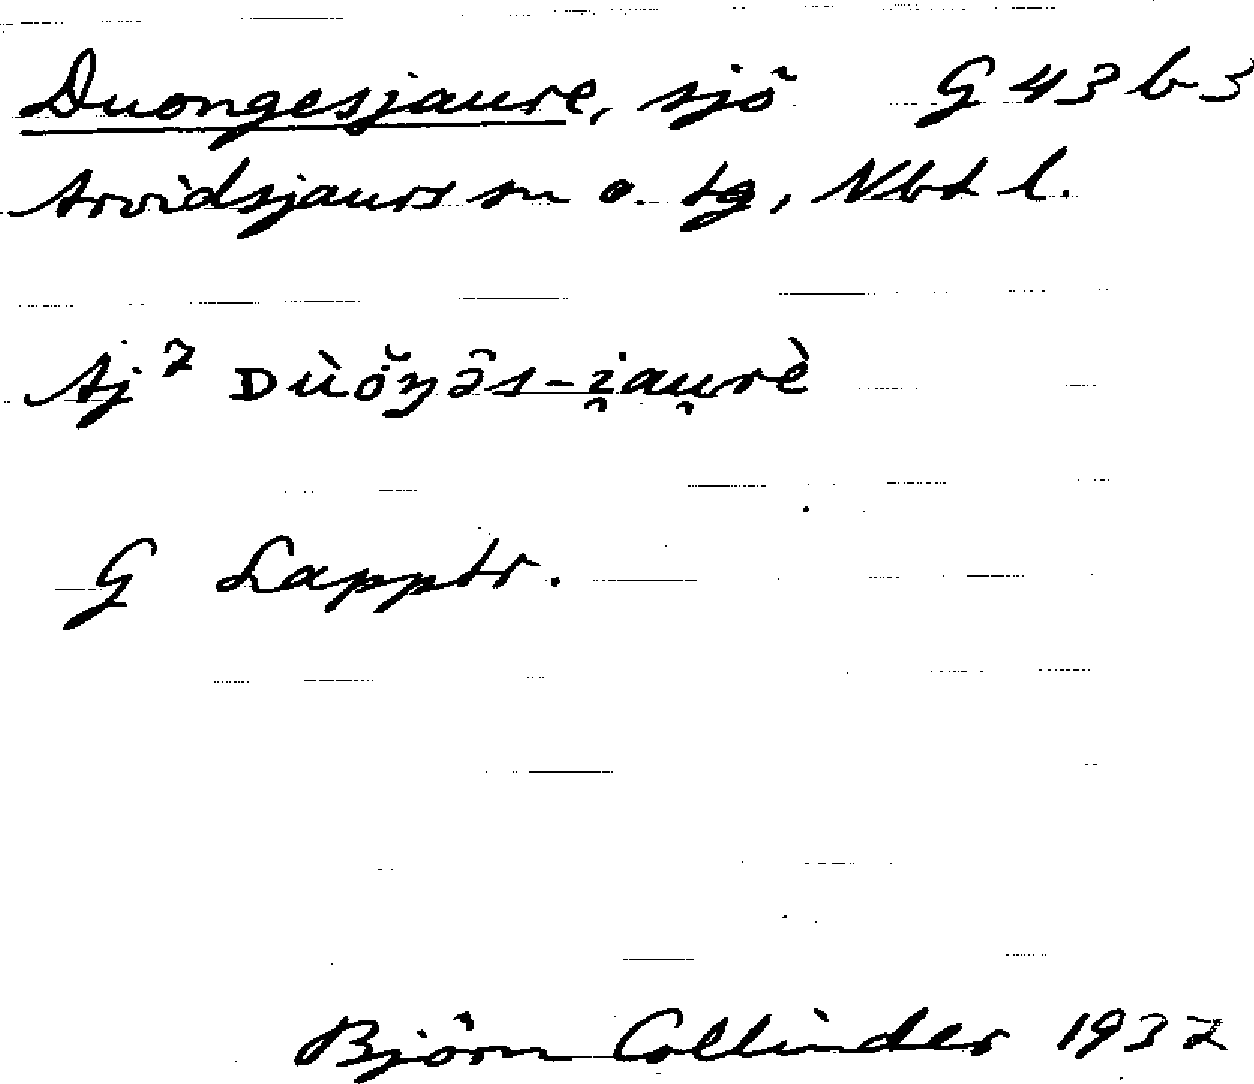 Duongesjaure, sjö G 43 b 3
Arvidsjaurs sn o. tg, Nbt l.
Aj⁷ Dùŏ̤ŋə̑s-i̯au̯rè
G Lapptr.
Björn Collinder 1937